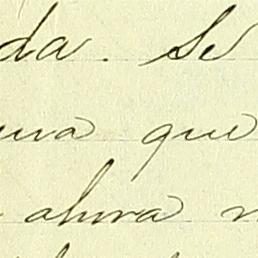 da. Se
una que
ahora